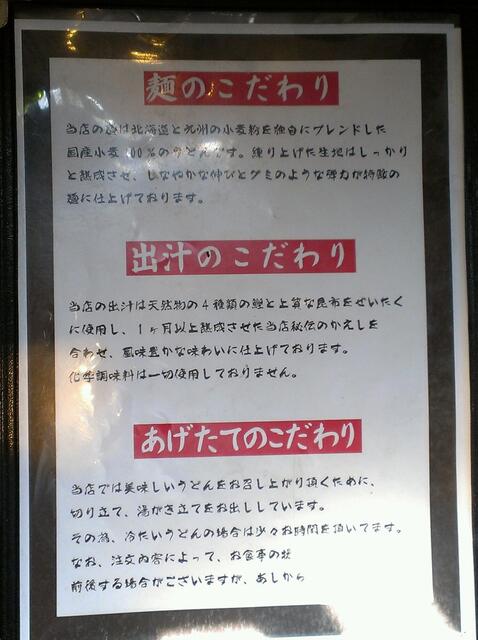 麺のこだわり
当店の麺は北海道と九州の小麦粉を独自にブレンドした
国産小麦100%のうどんです。練り上げた生地はしっかり
と熟成させ、しなやかな伸びとグミのような弾力が特徴の
麺に仕上げております。
出汁のこだわり
当店の出汁は天然物の4種類の鰹と上質な昆布をぜいたく
に使用し、1ヶ月以上熟成させた当店秘伝のかえしを
合わせ、風味豊かな味わいに仕上げております。
化学調味料は一切使用しておりません。
あげたてのこだわり
当店では美味しいうどんをお召し上がり頂くために、
切り立て、湯がき立てをお出ししています。
その為、冷たいうどんの場合は少々お時間を頂いてます。
なお、注文内容によって、お食事の
前後する場合がございますが、あしから